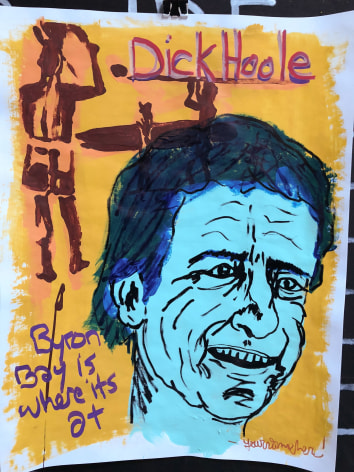 Dick Hoole
Byron
Bay is
where its
at